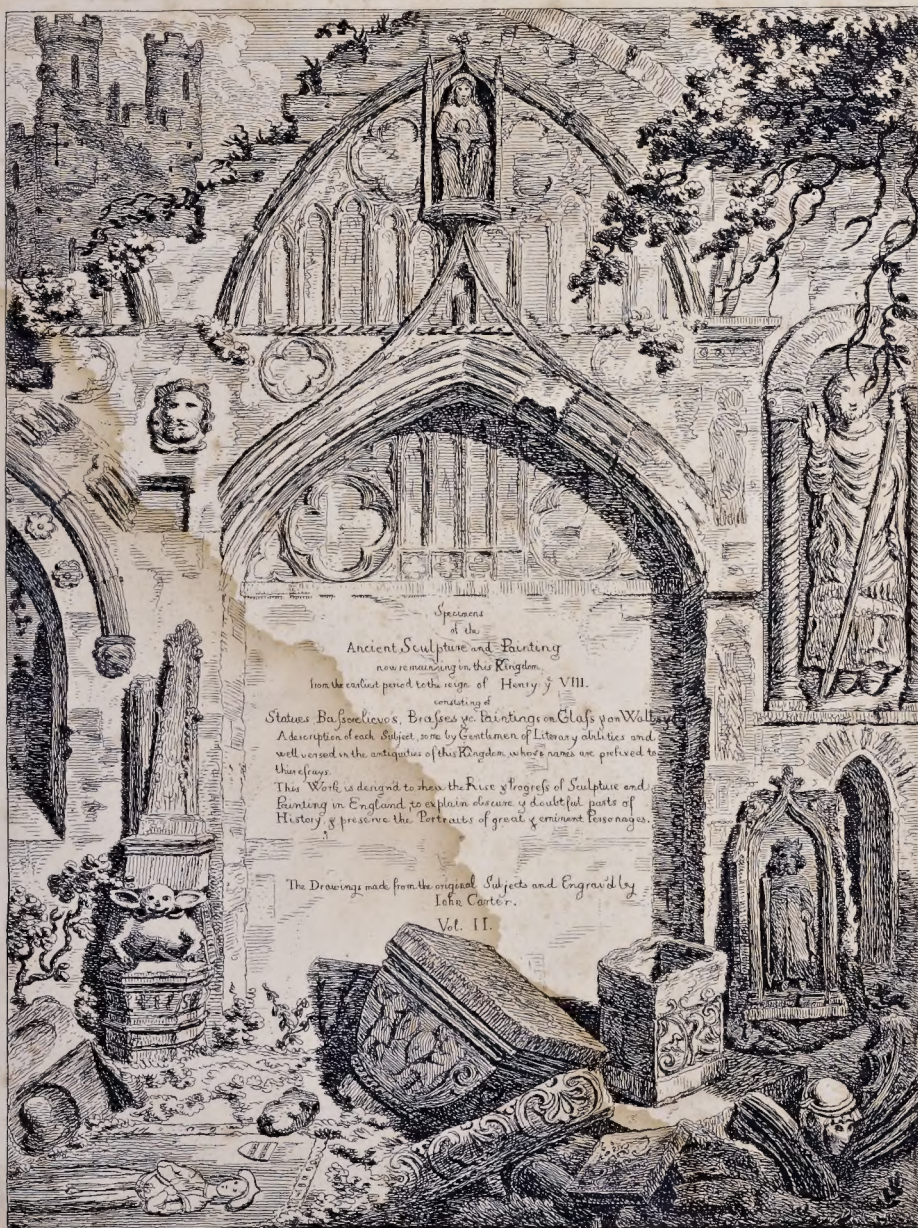 Specimens
of the
Ancient Sculpture and Painting
now remaining in this Kingdom,
from the earliest period to the reign of Henry yͤ VIII.
consisting of
Statues Baſsorelievos, Braſses &c. Paintings on Glaſs & on Walls &c
A description of each Subject, some by Gentlemen of Literary abilities and
well versed in the antiquities of this Kingdom whose names are prefixed to
their eſsays.
This Work is design'd to shew the Rise & Progreſs of Sculpture and
Painting in England, to explain obscure & doubtful parts of
History & preserve the Portraits of great & eminent Personages.
The Drawings made from the original Subjects and Engrav'd by
Iohn Carter.
Vol. II.